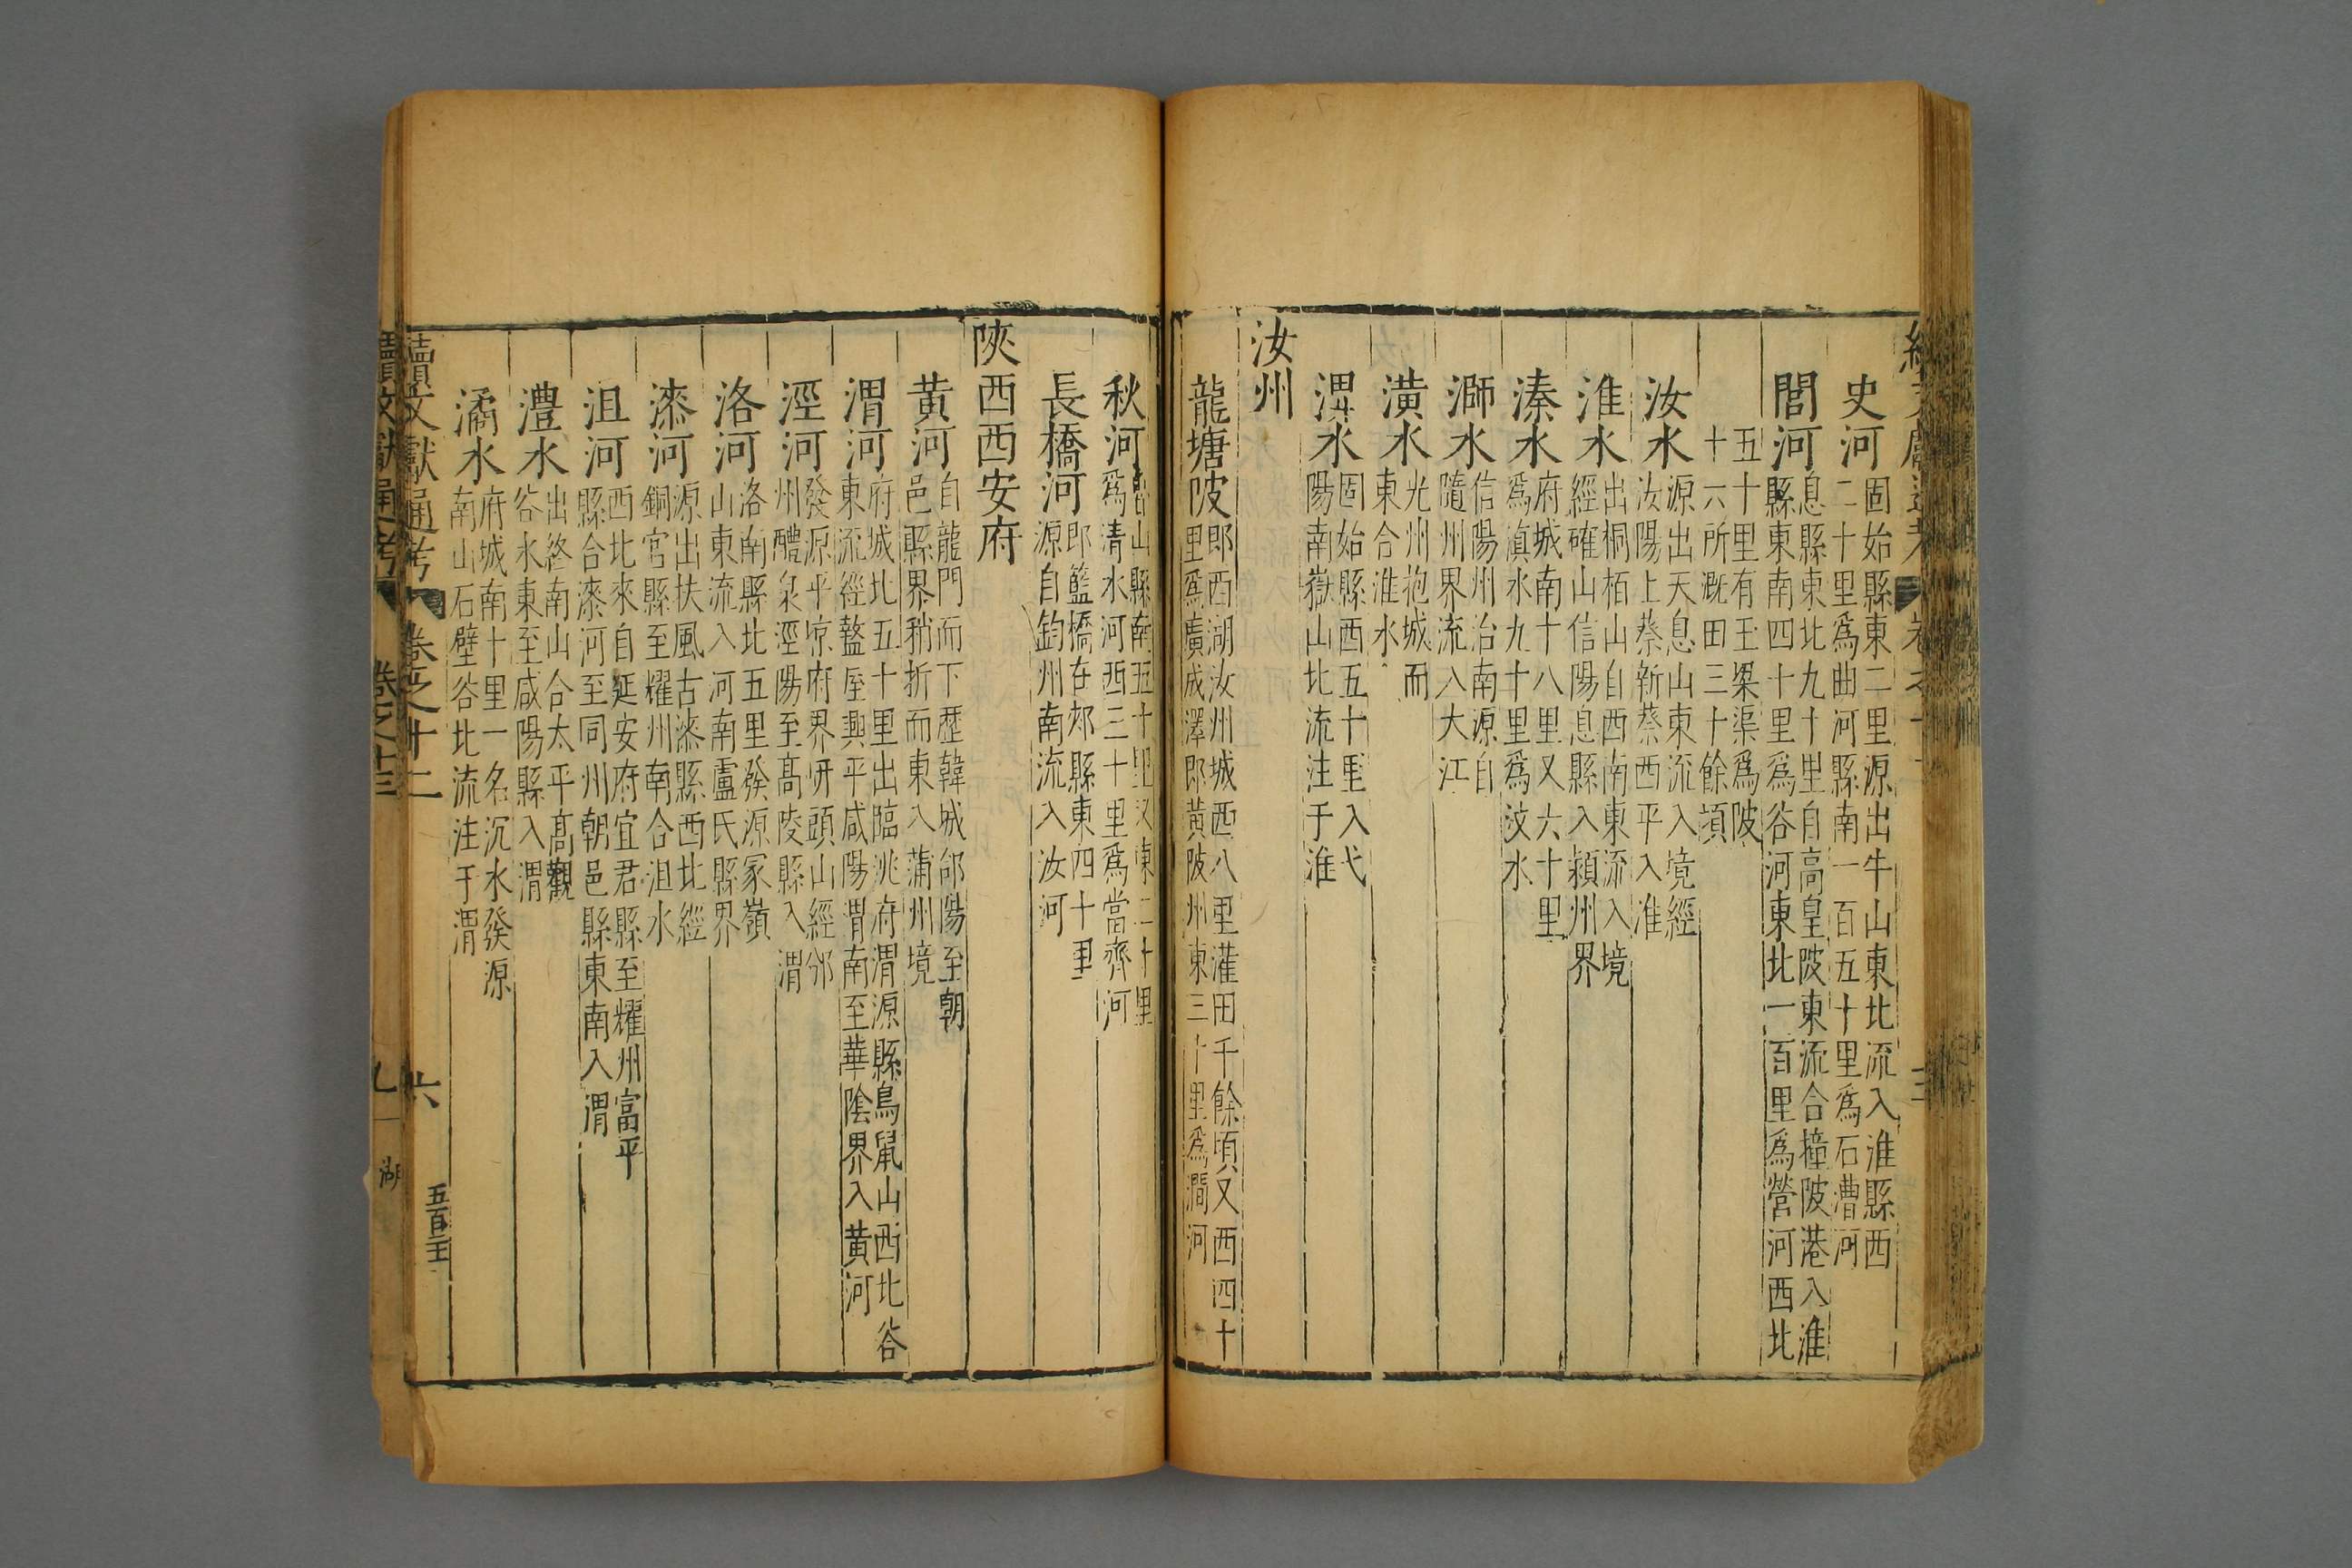 史河固始縣東二里源出牛山東北流入淮縣西
二十里爲曲河縣南一百五十里爲石漕河
閭河息縣東北九十里自高皇陂東流合撞陂港入淮
縣東南四十里爲谷河東北一百里爲營河西北
五十里有玉梁渠爲陂
十六所漑田三十餘頃
汝水源出天息山東流入境經
汝陽上蔡新蔡西平入淮
淮水出桐栢山自西南東流入境
經確山信陽息縣入潁州界
溱水府城南十八里又六十里
爲滇水九十里爲汶水
溮水信陽州治南源自
隨州界流入大江
潢水光州抱城而
東合淮水
淠水固始縣西五十里入弋
陽南嶽山北流注于淮
汝州
龍塘陂郎西湖汝州城西八里灌田千餘頃又西四十
里爲廣成澤郎黃陂州東三十里爲澗河
秋河魯山縣南五十里又東二十里
爲清水河西三十里爲當齊河
長橋河郎籃橋在郟縣東四十里
源自鈞州南流入汝河
陝西西安府
黃河自龍門而下歷韓城郃陽至朝
邑縣界稍折而東入蒲州境
渭河府城北五十里出臨洮府渭源縣鳥鼠山西北谷
東流經盩厔興平咸陽渭南至華陰界入黃河
涇河發源平凉府界岍頭山經邠
州醴泉涇陽至髙陵縣入渭
洛河洛南縣北五里發源冢嶺
山東流入河南盧氏縣界
漆河源出扶風古漆縣西北經
銅官縣至耀州南合沮水
沮河西北來自延安府宜君縣至耀州富平
縣合漆河至同州朝邑縣東南入渭
灃水出終南山合太平髙觀
谷水東至咸陽縣入渭
潏水府城南十里一名沉水發源
南山石壁谷北流注于渭
續文獻通考 卷之十二 六